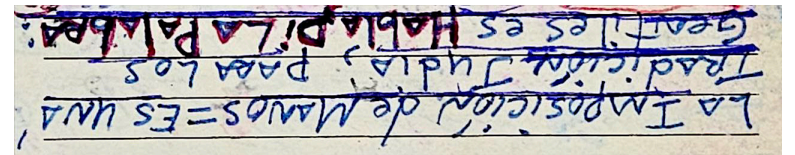 LA ImPOSICIÓN de MANOS = ES UNA,
TRADICIÓN JUDÍA, PARA LOS
GenTiles es HAblA Di LA PAlAbRA: